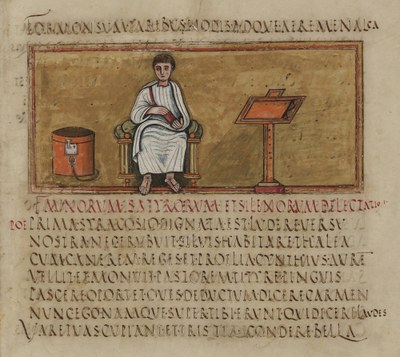 FORMONSVMPARIBVSNODISADQVEAEREMENALCA
FAVNORVMSATYRORVMETSILENORVMDELECTATIO
POE PRIMASYRACOSIODIGNATAESTLVDEREVERSV
NOSTRANECERVBVITSILVISHABITARETHALEA
CVMCANEREMREGESETPROELIACYNTHIVSAVRE
VELLITETADMONVITPASTOREMTITYREPINGVIS
PASCEREOPORTETOVESDEDVCTVMDICERECARMEN
NVNCEGONAMQVESVPERTIBIERVNTQVIDICERELAVDES
VARETVASCVPIANTETTRISTIACONDEREBELLA